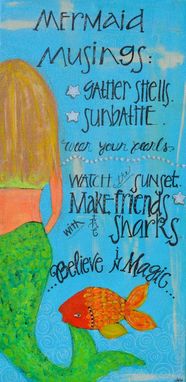 MERMAID
MUSINGS:
GATHER SHELLS.
SUNBATHE.
wear your pearls.
WATCH the SUNSET.
MAKE friends
with the
SHARKS
...Believe in Magic...